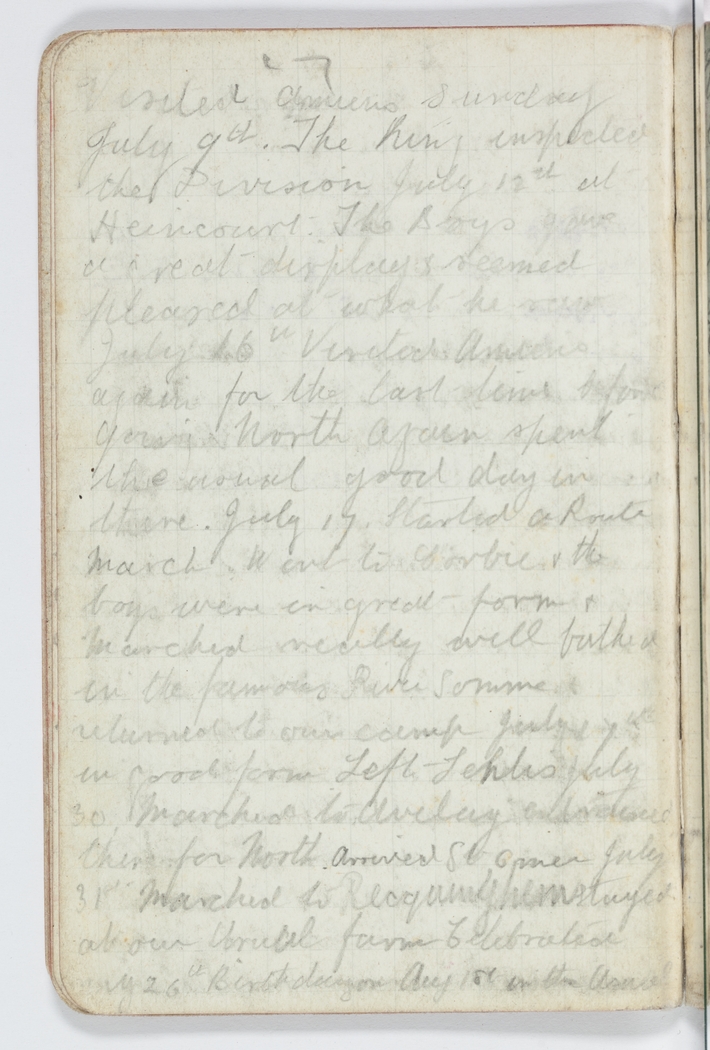 Visited Amiens Sunday
July 9th. The King inspected
the Division July 12th at
Heincourt. The Boys gave
a great display & seemed
pleased at what he saw
July 16th Visited Amiens
again for the last time before
going North again spent
the usual good day in
there. July 17. Started a Route
March. Went to Corbie & the
boys were in great form &
Marched really well bathed
in the famous River Somme &
returned to our camp July
in good form Left July
30. Marched to & entrained
there for North. Arrived St Omer July
31st Marched to Recquinghem stayed
at our usual farm Celebrated
my 26th Birthday on Aug 1st in the usual